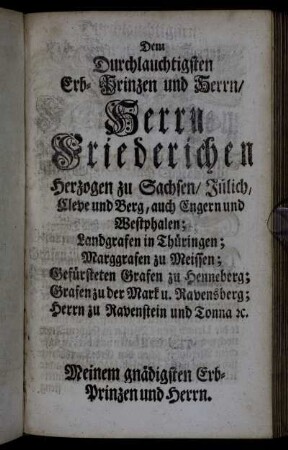 Dem
Durchlauchtigsten
Erb- Prinzen und Herrn/
Herrn
Friederichen
Herzogen zu Sachsen/ Jülich,
Cleve und Berg, auch Engern und
Westphalen;
Landgrafen in Thüringen;
Marggrafen zu Meissen;
Gefürsteten Grafen zu Henneberg;
Grafen zu der Mark u. Ravensberg;
Herrn zu Ravenstein und Tonna ꝛc.
Meinem gnädigsten Erb-
Prinzen und Herrn.